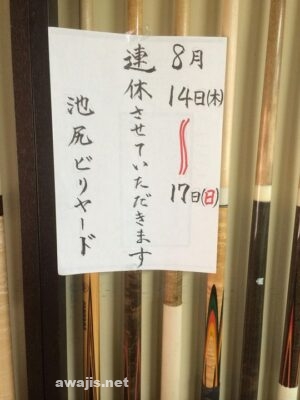 8月
14日(木)
〜
17日(日)
連休させていただきます
池尻ビリヤード
awajis.net